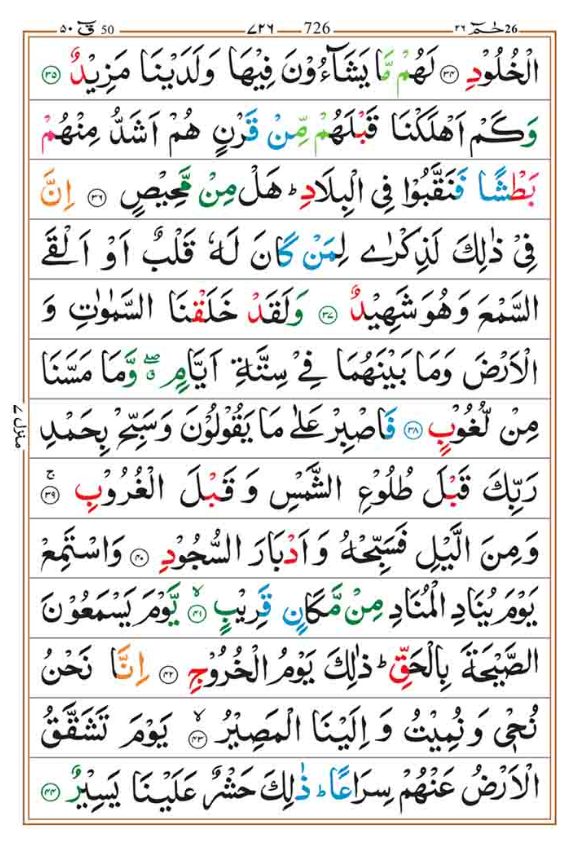 ٥٠ قٓ 50 ٧٢٦ 726 ٢٦ حٰمٓ 26
الْخُلُوْدِ ﴿٣٤﴾ لَهُمْ مَّا يَشَآءُوْنَ فِيْهَا وَلَدَيْنَا مَزِيْدٌ ﴿٣٥﴾
وَكَمْ اَهْلَكْنَا قَبْلَهُمْ مِّنْ قَرْنٍ هُمْ اَشَدُّ مِنْهُمْ
بَطْشًا فَنَقَّبُوْا فِي الْبِلَادِ ؕ هَلْ مِنْ مَّحِيْصٍ ﴿٣٦﴾ اِنَّ
فِيْ ذٰلِكَ لَذِكْرٰى لِمَنْ كَانَ لَهٗ قَلْبٌ اَوْ اَلْقَى
السَّمْعَ وَهُوَ شَهِيْدٌ ﴿٣٧﴾ وَلَقَدْ خَلَقْنَا السَّمٰوٰتِ وَ
الْاَرْضَ وَمَا بَيْنَهُمَا فِيْ سِتَّةِ اَيَّامٍ ۖ ق وَّمَا مَسَّنَا
مِنْ لُّغُوْبٍ ﴿٣٨﴾ فَاصْبِرْ عَلٰى مَا يَقُوْلُوْنَ وَسَبِّحْ بِحَمْدِ
رَبِّكَ قَبْلَ طُلُوْعِ الشَّمْسِ وَقَبْلَ الْغُرُوْبِ ۚ ﴿٣٩﴾
وَمِنَ الَّيْلِ فَسَبِّحْهُ وَاَدْبَارَ السُّجُوْدِ ﴿٤٠﴾ وَاسْتَمِعْ
يَوْمَ يُنَادِ الْمُنَادِ مِنْ مَّكَانٍ قَرِيْبٍ ۙ ﴿٤١﴾ يَّوْمَ يَسْمَعُوْنَ
الصَّيْحَةَ بِالْحَقِّ ؕ ذٰلِكَ يَوْمُ الْخُرُوْجِ ﴿٤٢﴾ اِنَّا نَحْنُ
نُحْيٖ وَنُمِيْتُ وَاِلَيْنَا الْمَصِيْرُ ۙ ﴿٤٣﴾ يَوْمَ تَشَقَّقُ
الْاَرْضُ عَنْهُمْ سِرَاعًا ؕ ذٰلِكَ حَشْرٌ عَلَيْنَا يَسِيْرٌ ﴿٤٤﴾
منزل ٧